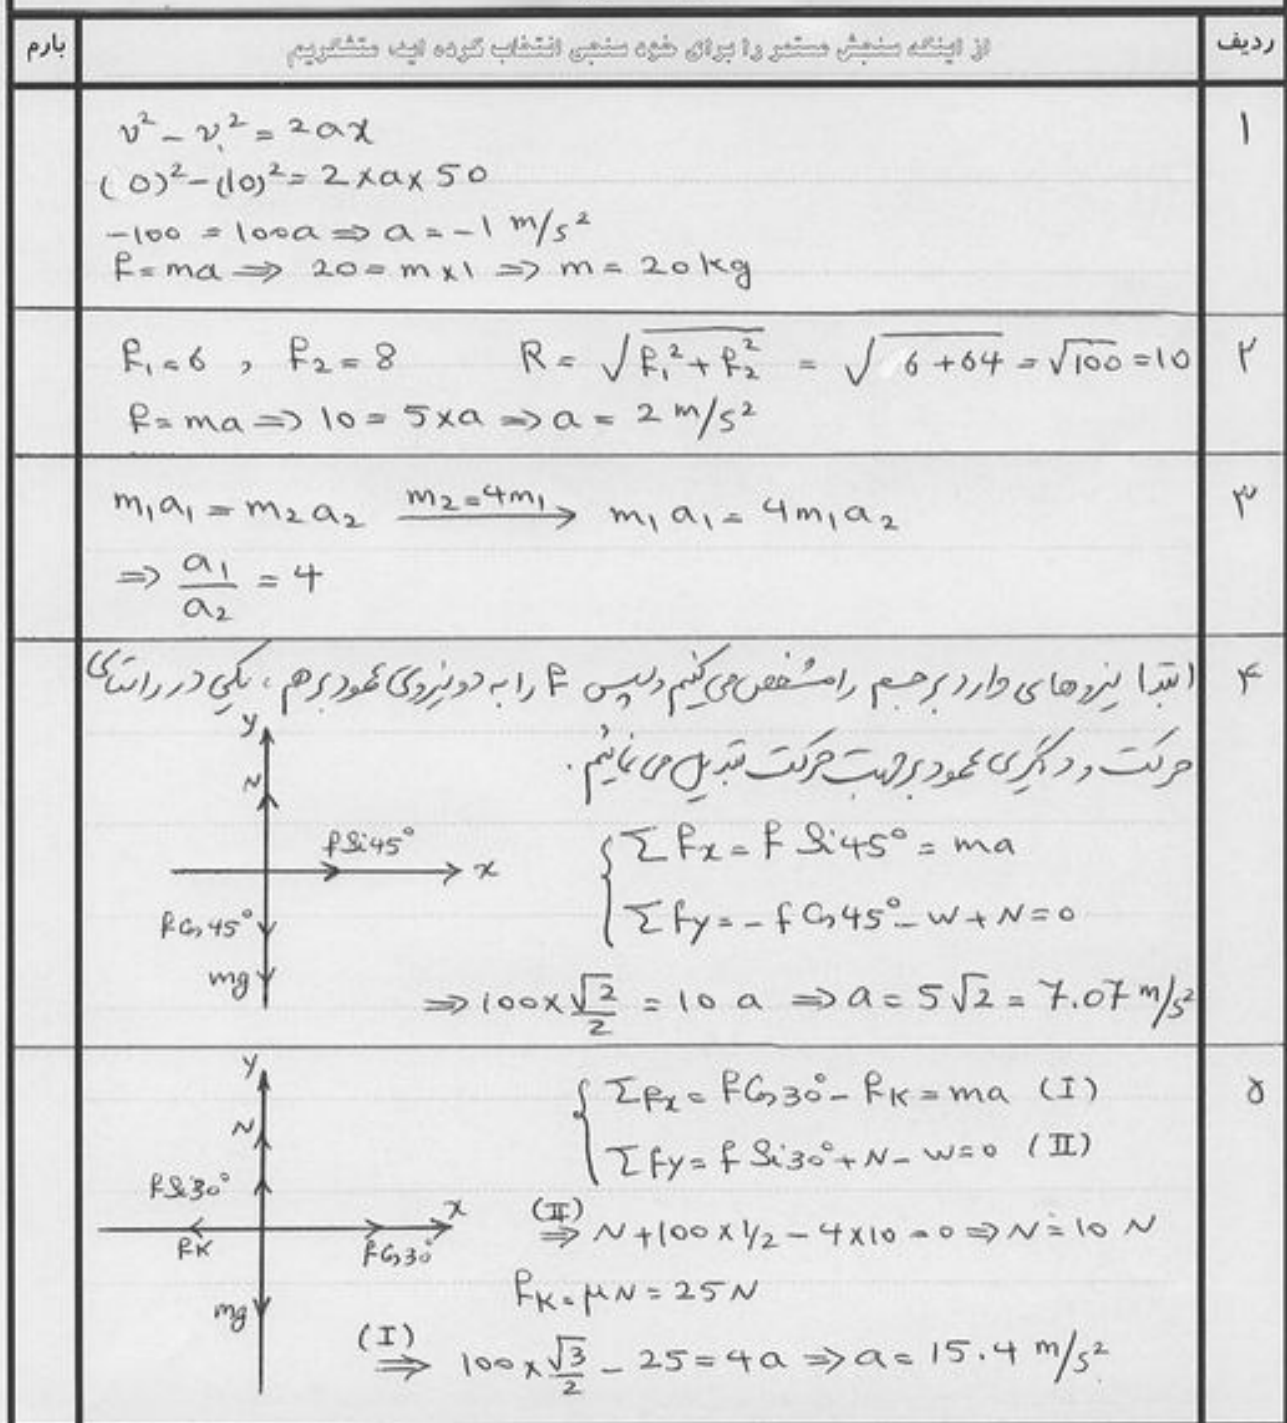 ردیف
از اینکه سنجش مستمر را برای خود سنجی انتخاب کرده اید، متشکریم
بارم
۱
v² - v.² = 2ax
(0)² - (10)² = 2 × a × 50
-100 = 100a ⇒ a = -1 m/s²
F = ma ⇒ 20 = m × 1 ⇒ m = 20 kg
۲
F₁ = 6 , F₂ = 8 R = √F₁² + F₂² = √6 + 64 = √100 = 10
F = ma ⇒ 10 = 5 × a ⇒ a = 2 m/s²
۳
m₁a₁ = m₂a₂ m₂ = 4m₁ → m₁a₁ = 4m₁a₂
⇒ a₁/a₂ = 4
۴
ابتدا نیروهای وارد بر جسم را مشخص می کنیم و سپس F را به دو نیروی عمود بر هم ، یکی در راستای
حرکت و دیگری عمود بر جهت حرکت تبدیل می نمائیم .
y
N
F Sin 45°
x
F Cos 45°
mg
ΣFx = F Sin 45° = ma
ΣFy = - F Cos 45° - W + N = 0
⇒ 100 × √2/2 = 10 a ⇒ a = 5√2 = 7.07 m/s²
۵
y
N
F Sin 30°
x
FK
F Cos 30°
mg
ΣFx = F Cos 30° - FK = ma (I)
ΣFy = F Sin 30° + N - W = 0 (II)
(II) ⇒ N + 100 × 1/2 - 4 × 10 = 0 ⇒ N = 10 N
FK = μN = 25 N
(I) ⇒ 100 × √3/2 - 25 = 4a ⇒ a = 15.4 m/s²